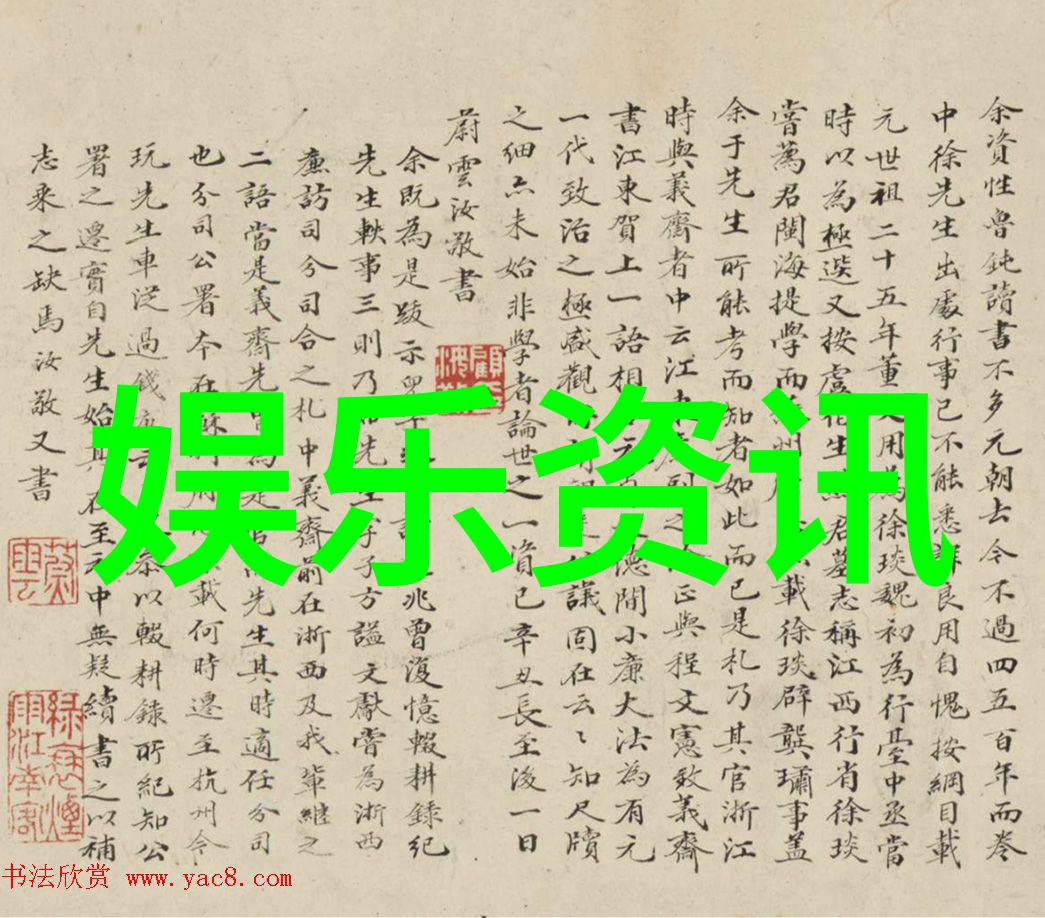 余資性魯鈍讀書不多元朝去今不過四五百年而卷
中徐先生出處行事已不能悉詳良用自愧按綱目載
元世祖二十五年董文用為徐琰魏初為行臺中丞當
時以為極選又按虞伯生熊君墓志稱江西行省徐琰
嘗薦君閩海提學而州載徐琰辟龔璛事蓋
余于先生所能考而知者如此而已是札乃其官浙江
時與義齋者中云江東之正與程文憲效義齋
書江東賀上一語相德間小廉大法為有元
一代致治之極盛觀議固在云云知尺牘
之細亦未始非學者論世之一資已辛丑長至後一日
蔚雲汝敬書
余既為是跋示兆曾復憶輟耕錄紀
先生軼事三則乃先生字子方謚文獻嘗為浙西
廉訪司分司合之札中義齋前在浙西及我輩繼之
二語當是義齋先是先生其時適任分司
也分司公署今在載何時遷至杭州今
玩先生車從過錢以輟耕錄所紀知公
署之遷實自先生始其在至元中無疑續書之以補
志乘之缺馬汝敬又書
娱乐资讯
书法欣赏 www.yac8.com